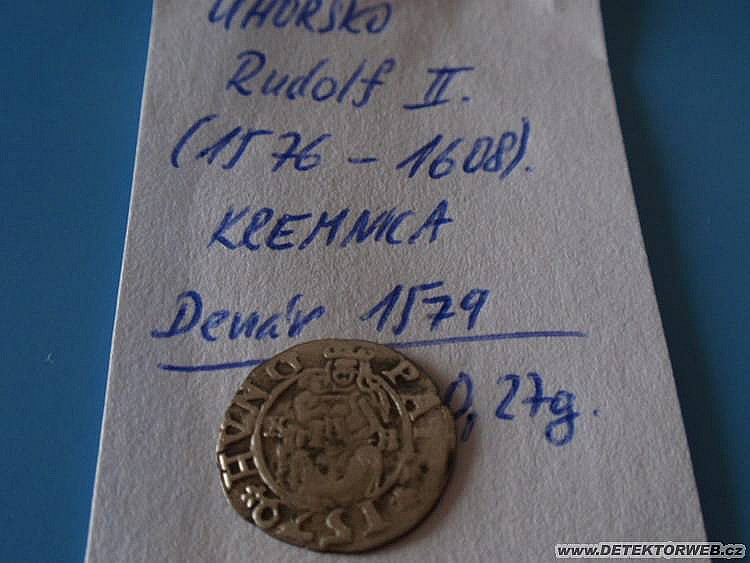 UHORSKO
Rudolf II.
(1576 - 1608).
KREMNICA
Denár 1579
0,27g.
PA
HVNG
www.DETEKTORWEB.cz